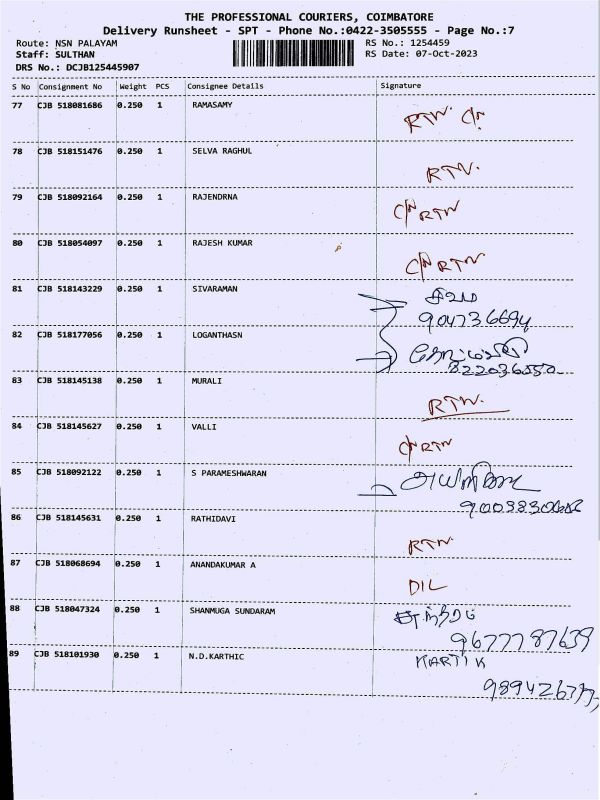 THE PROFESSIONAL COURIERS, COIMBATORE
Delivery Runsheet - SPT - Phone No.:0422-3505555 - Page No.:7
Route: NSN PALAYAM RS No.: 1254459
Staff: SULTHAN RS Date: 07-Oct-2023
DRS No.: DCJB125445907
S No Consignment No Weight PCS Consignee Details Signature
77 CJB 518081686 0.250 1 RAMASAMY RTN. C/N
78 CJB 518151476 0.250 1 SELVA RAGHUL RTN.
79 CJB 518092164 0.250 1 RAJENDRNA C/N RTN
80 CJB 518054097 0.250 1 RAJESH KUMAR C/N RTN
81 CJB 518143229 0.250 1 SIVARAMAN சிவா
904736694
82 CJB 518177056 0.250 1 LOGANTHASN
83 CJB 518145138 0.250 1 MURALI RTN.
84 CJB 518145627 0.250 1 VALLI C/N RTN
85 CJB 518092122 0.250 1 S PARAMESHWARAN
86 CJB 518145631 0.250 1 RATHIDAVI RTN
87 CJB 518068694 0.250 1 ANANDAKUMAR A DIL
88 CJB 518047324 0.250 1 SHANMUGA SUNDARAM
9677787639
89 CJB 518101930 0.250 1 N.D.KARTHIC KARTIK